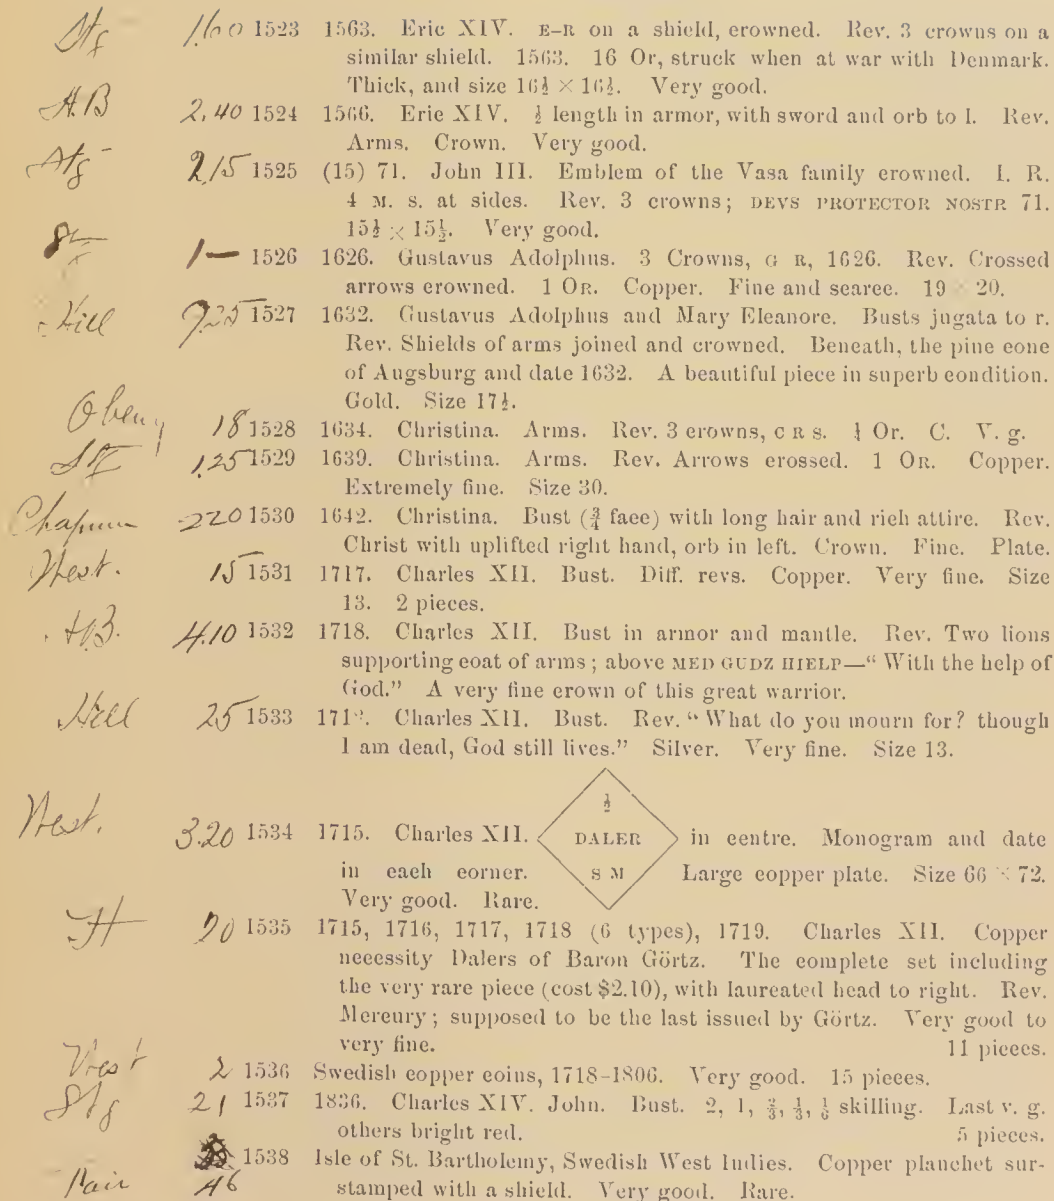 Stg 1.60 1523 1563. Eric XIV. E-R on a shield, crowned. Rev. 3 crowns on a
similar shield. 1563. 16 Or, struck when at war with Denmark.
Thick, and size 16½ × 16½. Very good.
H.B 2.40 1524 1566. Eric XIV. ½ length in armor, with sword and orb to l. Rev.
Arms. Crown. Very good.
Stg 2.15 1525 (15) 71. John III. Emblem of the Vasa family crowned. I. R.
4 M. S. at sides. Rev. 3 crowns; DEVS PROTECTOR NOSTR 71.
15½ × 15½. Very good.
1— 1526 1626. Gustavus Adolphus. 3 Crowns, G R, 1626. Rev. Crossed
arrows crowned. 1 OR. Copper. Fine and scarce. 19 × 20.
Hill 7.25 1527 1632. Gustavus Adolphus and Mary Eleanore. Busts jugata to r.
Rev. Shields of arms joined and crowned. Beneath, the pine cone
of Augsburg and date 1632. A beautiful piece in superb condition.
Gold. Size 17½.
18 1528 1634. Christina. Arms. Rev. 3 crowns, C R S. Or. C. V. g.
1.25 1529 1639. Christina. Arms. Rev. Arrows crossed. 1 OR. Copper.
Extremely fine. Size 30.
Chapman 2.20 1530 1642. Christina. Bust (¾ face) with long hair and rich attire. Rev.
Christ with uplifted right hand, orb in left. Crown. Fine. Plate.
West. 15 1531 1717. Charles XII. Bust. Diff. revs. Copper. Very fine. Size
13. 2 pieces.
H.B. 4.10 1532 1718. Charles XII. Bust in armor and mantle. Rev. Two lions
supporting coat of arms; above MED GUDZ HIELP—“With the help of
God.” A very fine crown of this great warrior.
Hill 25 1533 Charles XII. Bust. Rev. “What do you mourn for? though
I am dead, God still lives.” Silver. Very fine. Size 13.
West. 3.20 1534 1715. Charles XII. ½ DALER S M in centre. Monogram and date
in each corner. Large copper plate. Size 66 × 72.
Very good. Rare.
H 20 1535 1715, 1716, 1717, 1718 (6 types), 1719. Charles XII. Copper
necessity Dalers of Baron Görtz. The complete set including
the very rare piece (cost $2.10), with laureated head to right. Rev.
Mercury; supposed to be the last issued by Görtz. Very good to
very fine. 11 pieces.
West 2 1536 Swedish copper coins, 1718-1806. Very good. 15 pieces.
Stg 21 1537 1836. Charles XIV. John. Bust. 2, 1, ⅔, ⅓, ⅙ skilling. Last v. g.
others bright red. 5 pieces.
1538 Isle of St. Bartholemy, Swedish West Indies. Copper planchet sur-
46 stamped with a shield. Very good. Rare.